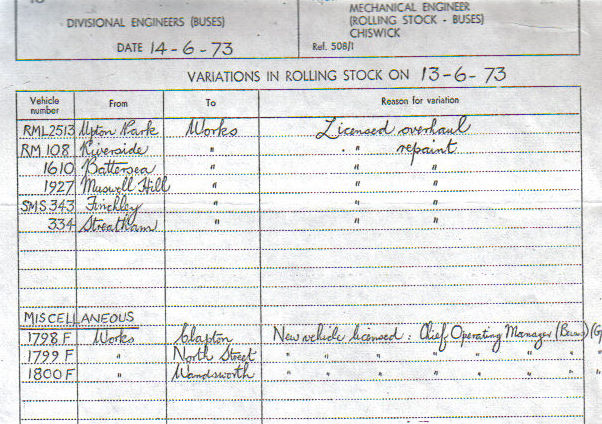 DIVISIONAL ENGINEERS (BUSES)
DATE 14-6-73
MECHANICAL ENGINEER
(ROLLING STOCK - BUSES)
CHISWICK
Ref. 508/1
VARIATIONS IN ROLLING STOCK ON 13-6-73
Vehicle number From To Reason for variation
RML2513 Upton Park Works Licensed overhaul
RM 108 Riverside " " repaint
1610 Battersea " " "
1927 Muswell Hill " " "
SMS 343 Finchley " " "
334 Streatham " " "
MISCELLANEOUS
1798 F Works Clapton New vehicle licensed: Chief Operating Manager (Buses)
1799 F " North Street " " " " " " "
1800 F " Wandsworth " " " " " " "